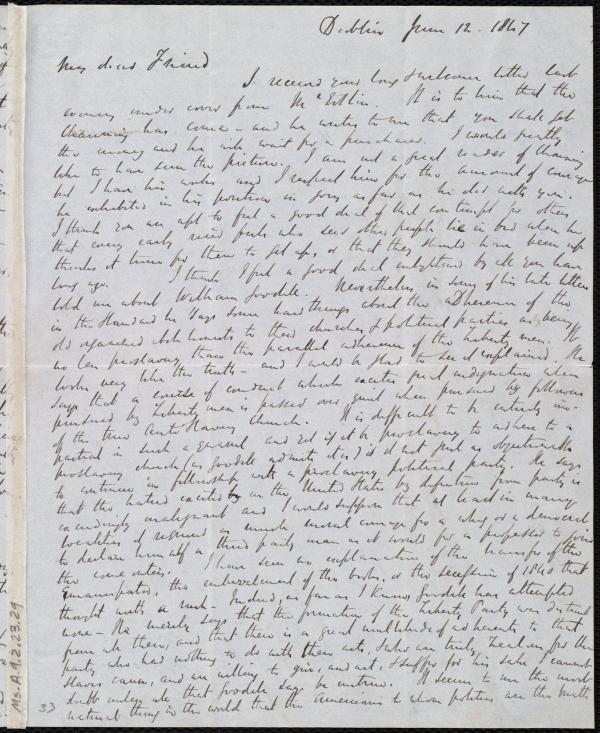 Dublin June 12 - 1847
My dear Friend
I received your long & welcome letter last
evening under cover from Mr Estlin. It is to him that the
Channing has come - and he writes to me that you shall get
the money and he will wait for a purchaser. I would gladly
like to have seen the picture. I am not a great reader of Channing
but I have his works and I respect him for the amount of courage
he exhibited in his position in going as far as he did with you.
I think you are apt to feel a good deal of that contempt for others
that every early riser feels who sees other people lie in bed when he
thinks it time for them to get up, or that they should have been up
long ago. I think I feel a good deal enlightened by all you have
told me about William Goodell. Nevertheless, in some of his late letters
in the Standard he says some hard things about the adherence of the
old organized abolitionists to their churches & political parties as being
no less proslavery than the parallel adherence of the Liberty men. It
looks very like the truth - and I would be glad to see it explained. He
says that a course of conduct which excites great indignation when
pursued by Liberty men is passed over quiet when pursued by followers
of the true Anti Slavery Church. It is difficult to be entirely im-
partial in such a quarrel and yet if it be proslavery to adhere to a
proslavery church (as Goodell admits it is) is it not just as objectionable
to continue in fellowship with a proslavery political party. He says
that the hatred excited in the United States by defection from party is
exceedingly malignant and I would suppose that at least in many
localities it required as much moral courage for a whig or a democrat
to declare himself a third party man as it would for a professor to join
the come outers. I have seen no explanation of the transfer of the
Emancipator, the embezzlement of the books, or the secession of 1840 that
thought worth a rush - Indeed, as far as I know Goodell has attempted
none - He merely says that the formation of the Liberty Party was distinct
from all these, and that there is a great multitude of adherents to that
party, who had nothing to do with these acts, who are truly zealous for the
slaves cause, and are willing to give, and act, & suffer for his sake. I cannot
doubt unless all that Goodell says be untrue. It seems to me the most
natural thing in the world that the Americans to whom politics are the birth
33
Ms.A.1.2.v.23.29